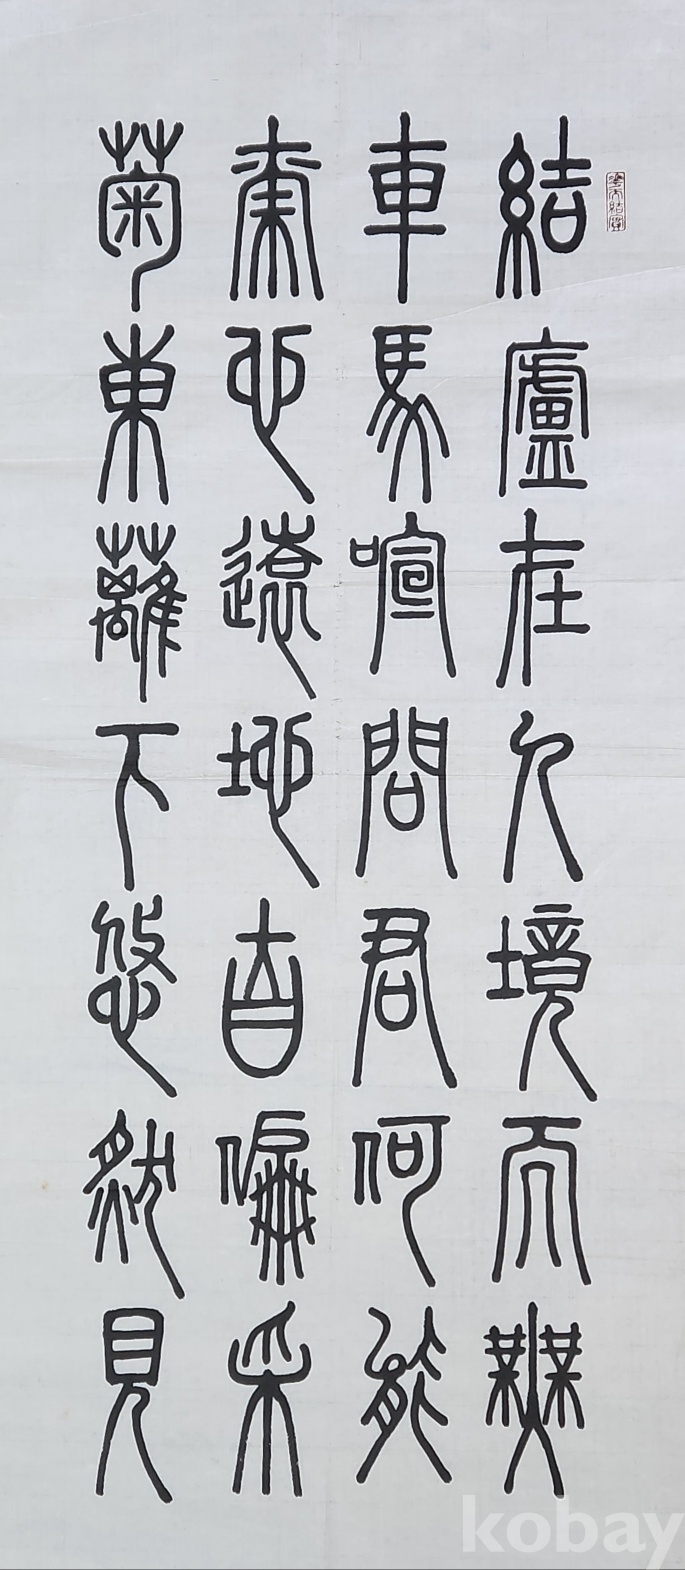 結廬在人境而無
車馬喧問君何能
心遠地自偏采
菊東蘺下悠然見
kobay